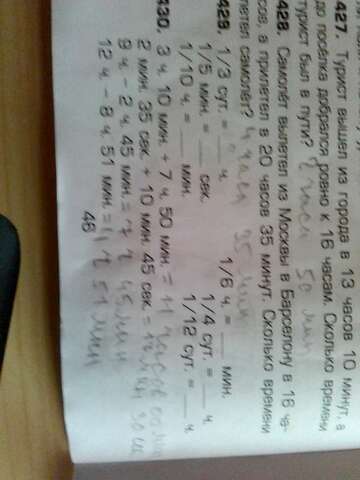 427. Турист вышел из города в 13 часов 10 минут, а
до посёлка добрался ровно к 16 часам. Сколько времени
турист был в пути? 2 часа 50 мин
428. Самолёт вылетел из Москвы в Барселону в 16 ча-
сов, а прилетел в 20 часов 35 минут. Сколько времени
летел самолёт? 4 часа 35 мин
429. 1/3 сут. = __ ч. 1/6 ч. = __ мин.
1/5 мин. = __ сек. 1/4 сут. = __ ч.
1/10 ч. = __ мин. 1/12 сут. = __ ч.
430. 3 ч. 10 мин. + 7 ч. 50 мин. = 11 часов
2 мин. 35 сек. + 10 мин. 45 сек. =
9 ч. - 2 ч. 45 мин. = 7 ч 45 мин
12 ч. - 8 ч. 51 мин. = 4 ч 51 мин
46